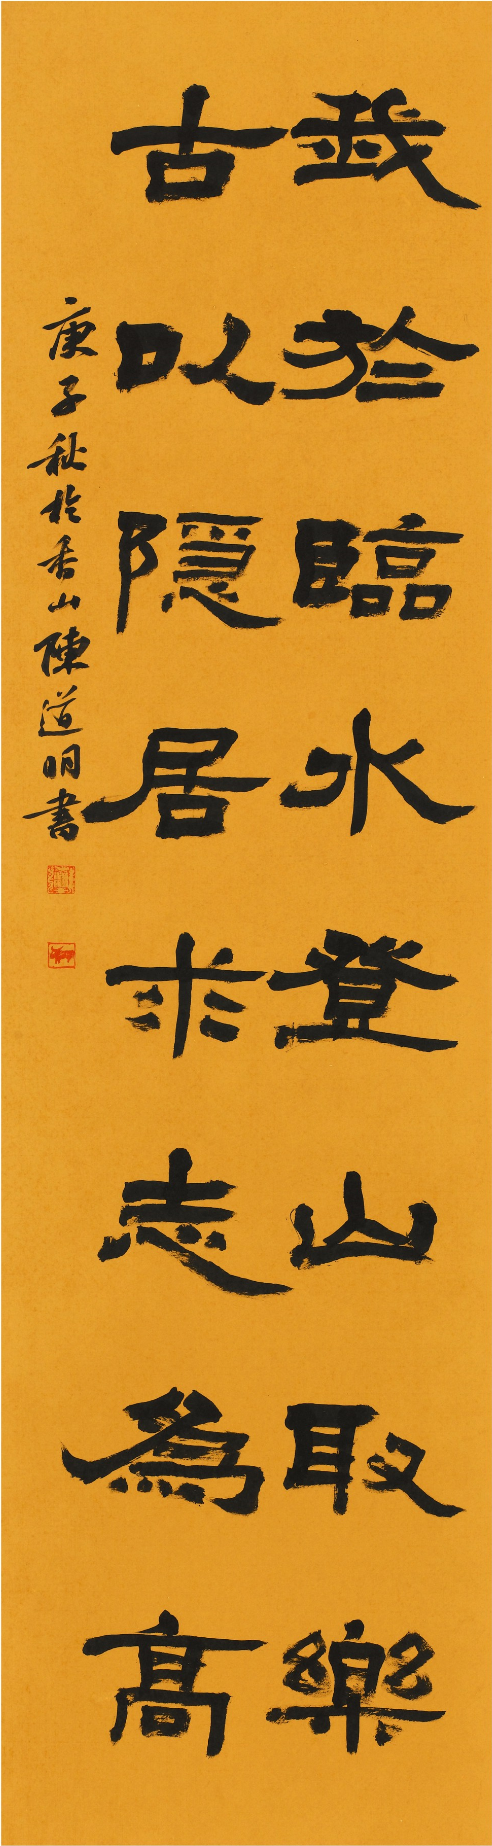 我於臨水登山取樂
古以隱居求志為高
庚子秋於香山陳道明書